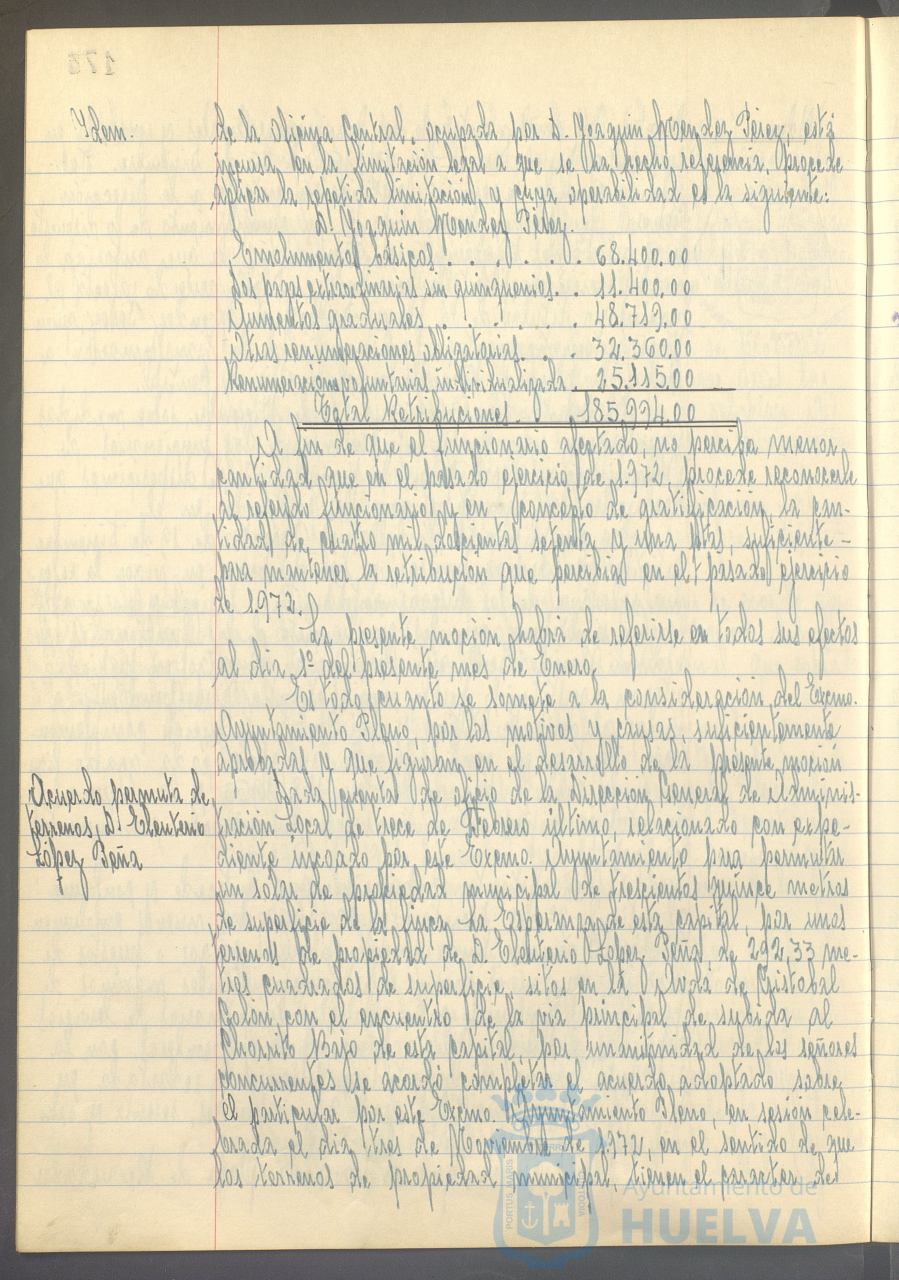 Idem.
de la Oficina Central, ocupada por D. Joaquín Mendez Pérez, está
incursa en la limitación legal a que se ha hecho referencia. Procede
aplicar la repetida limitación, y cuya operabilidad es la siguiente:
D. Joaquín Mendez Pérez.
Emolumentos básicos . . . . . 68.400.00
Dos pagas extraordinarias sin quinquenios. . 11.400.00
Aumentos graduales . . . . . 48.719.00
Otras remuneraciones obligatorias. . . 32.360.00
Remuneraciones voluntarias individualizada . 25.115.00
Total Retribuciones . 185.994.00
A fin de que el funcionario afectado, no perciba menor
cantidad que en el pasado ejercicio de 1.972, procede reconocerle
al referido funcionario y en concepto de gratificación, la can-
tidad de, cuatro mil doscientas setenta y una Ptas, suficiente-
para mantener la retribución que percibía en el pasado ejercicio
de 1.972.
La presente moción habrá de referirse en todos sus efectos
al día 1º del presente mes de Enero.
Es todo cuanto se somete a la consideración del Excmo.
Ayuntamiento Pleno, por los motivos y causas, suficientemente
aprobadas y que figuran en el desarrollo de la presente moción
Acuerdo permuta de
terrenos, D. Eleuterio
López Peña
Dada cuenta de oficio de la Dirección General de Adminis-
tración Local de trece de Febrero último, relacionado con expe-
diente incoado por este Excmo. Ayuntamiento para permutar
un solar de propiedad municipal de trescientos quince metros
de superficie de la finca La Esperanza de esta capital, por unos
terrenos de propiedad de D. Eleuterio López Peña, de 292,33 me-
tros cuadrados de superficie, sitos en la Avda de Cristobal
Colón con el encuentro de la via principal de subida al
Chorrito Bajo de esta capital, por unanimidad de los señores
concurrentes se acordó completar el acuerdo adoptado sobre
el particular por este Excmo. Ayuntamiento Pleno, en sesión cele-
brada el día tres de Noviembre de 1.972, en el sentido de que
los terrenos de propiedad municipal, tienen el caracter de
Ayuntamiento de
HUELVA